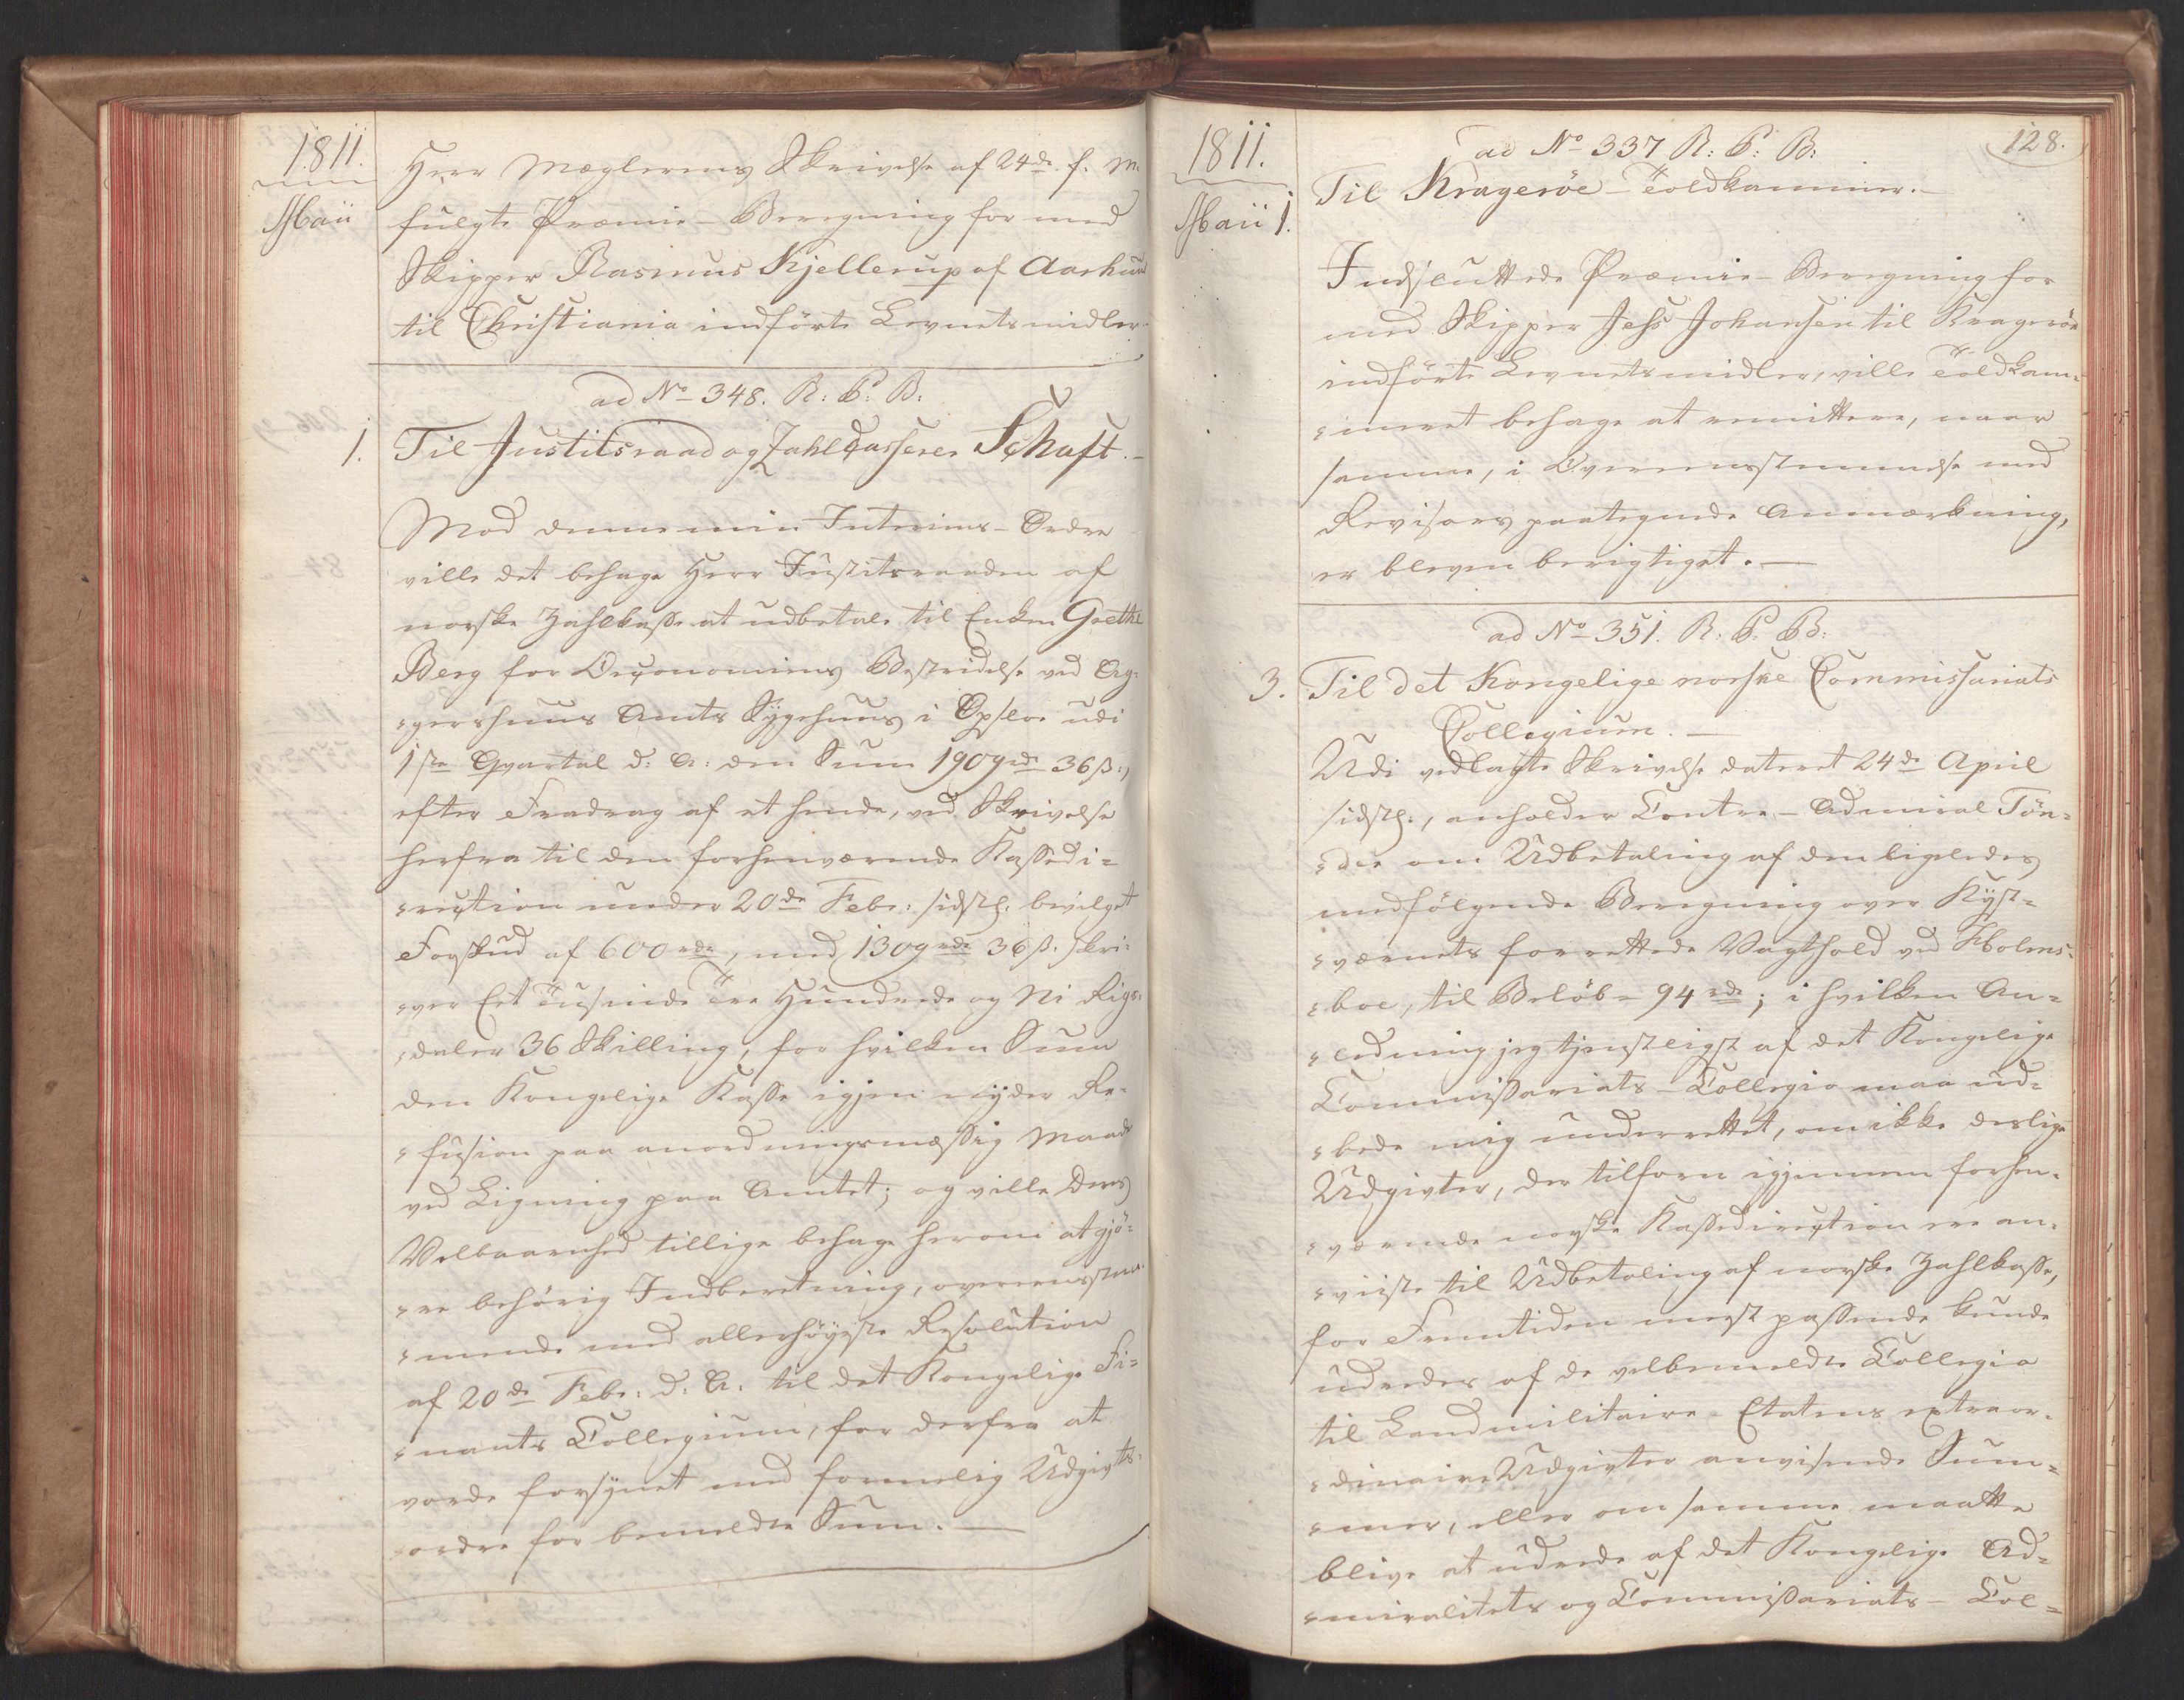 1811.
Maii
Herr Mæglerens Skrivelse af 24de f. M.
fulgte Præmie-Beregning for med
Skipper Rasmus Kjellerup af Aarhuus
til Christiania indförte Levnetsmidler.
ad No 348. R: C: B:
1. Til Justitsraad og Zahlcasserer Schaft.-
Mod denne min Interims-Ordre
ville det behage Herr Justitsraaden af
norske Zahlkasse at udbetale til Enken Grethe
Berg for Oeconomiens Bestridelse ved Ag-
gershuus Amts Sygehuus i Opsloe udi
1ste Qvartal d: A: den Sum 1909 rdr 36 ß:,
efter Fradrag af et hende, ved Skrivelse
herfra til den forhenværende Kassedi=
rection under 20de Febr: sidstl. bevilget
Forskud af 600 rdr, med 1309 rdr 36 ß. skri-
ver Eet Tusinde Tre Hundrede og Ni Rigs-
daler 36 Skilling, for hvilken Sum
den Kongelige Kasse igjen nyder Re-
fusion paa anordningsmæssig Maade
ved Ligning paa Amtet; og ville Deres
Velbaarenhed tillige behage herom at gjö=
re behörig Indberetning, overeensstem-
mende med allerhöyeste Resolution
af 20de Febr: d. A. til det Kongelige Fi=
nants Collegium, for derfra at
vorde forsynet med formelig Udgivts-
ordre for bemeldte Sum.-
128.
1811.
Maii 1.
ad No 337 R: C: B:
Til Krageröe-Toldkammer.-
Indsluttede Præmie-Beregning for
med Skipper Jess Johansen til Krageröe
indförte Levnetsmidler, ville Toldkam-
meret behage at remittere, naar
samme, i Overeensstemmelse med
Revisors paategnede Anmærkning,
er bleven berigtiget.-
ad No 351. R: C: B:
3. Til det Kongelige norske Commissariats
Collegium.-
Udi vedlagte Skrivelse dateret 24de April
sidstl., anholder Contre-Admiral Tön=
der om Udbetaling af den ligeledes
medfölgende Beregning over Kyst=
værnets forrettede Vagthold ved Holms-
boe, til Belöb= 94 rdr; i hvilken An=
ledning jeg tjenstligst af det Kongelige
Commissariats-Collegio maa ud=
bede mig underrettet, om ikke deslige
Udgivter, der tilforn igjennem forhen-
værende norske Kassedirection ere an-
viiste til Udbetaling af norske Zahlkasse,
for Fremtiden meest passende kunde
udredes af de velbemeldte Collegio
til Landmilitaire-Etatens extraor-
dinaire Udgivter anvisende Sum=
mer, eller om samme maatte
blive at udrede af det Kongelige Ad=
miralitets og Commissariats-Col=